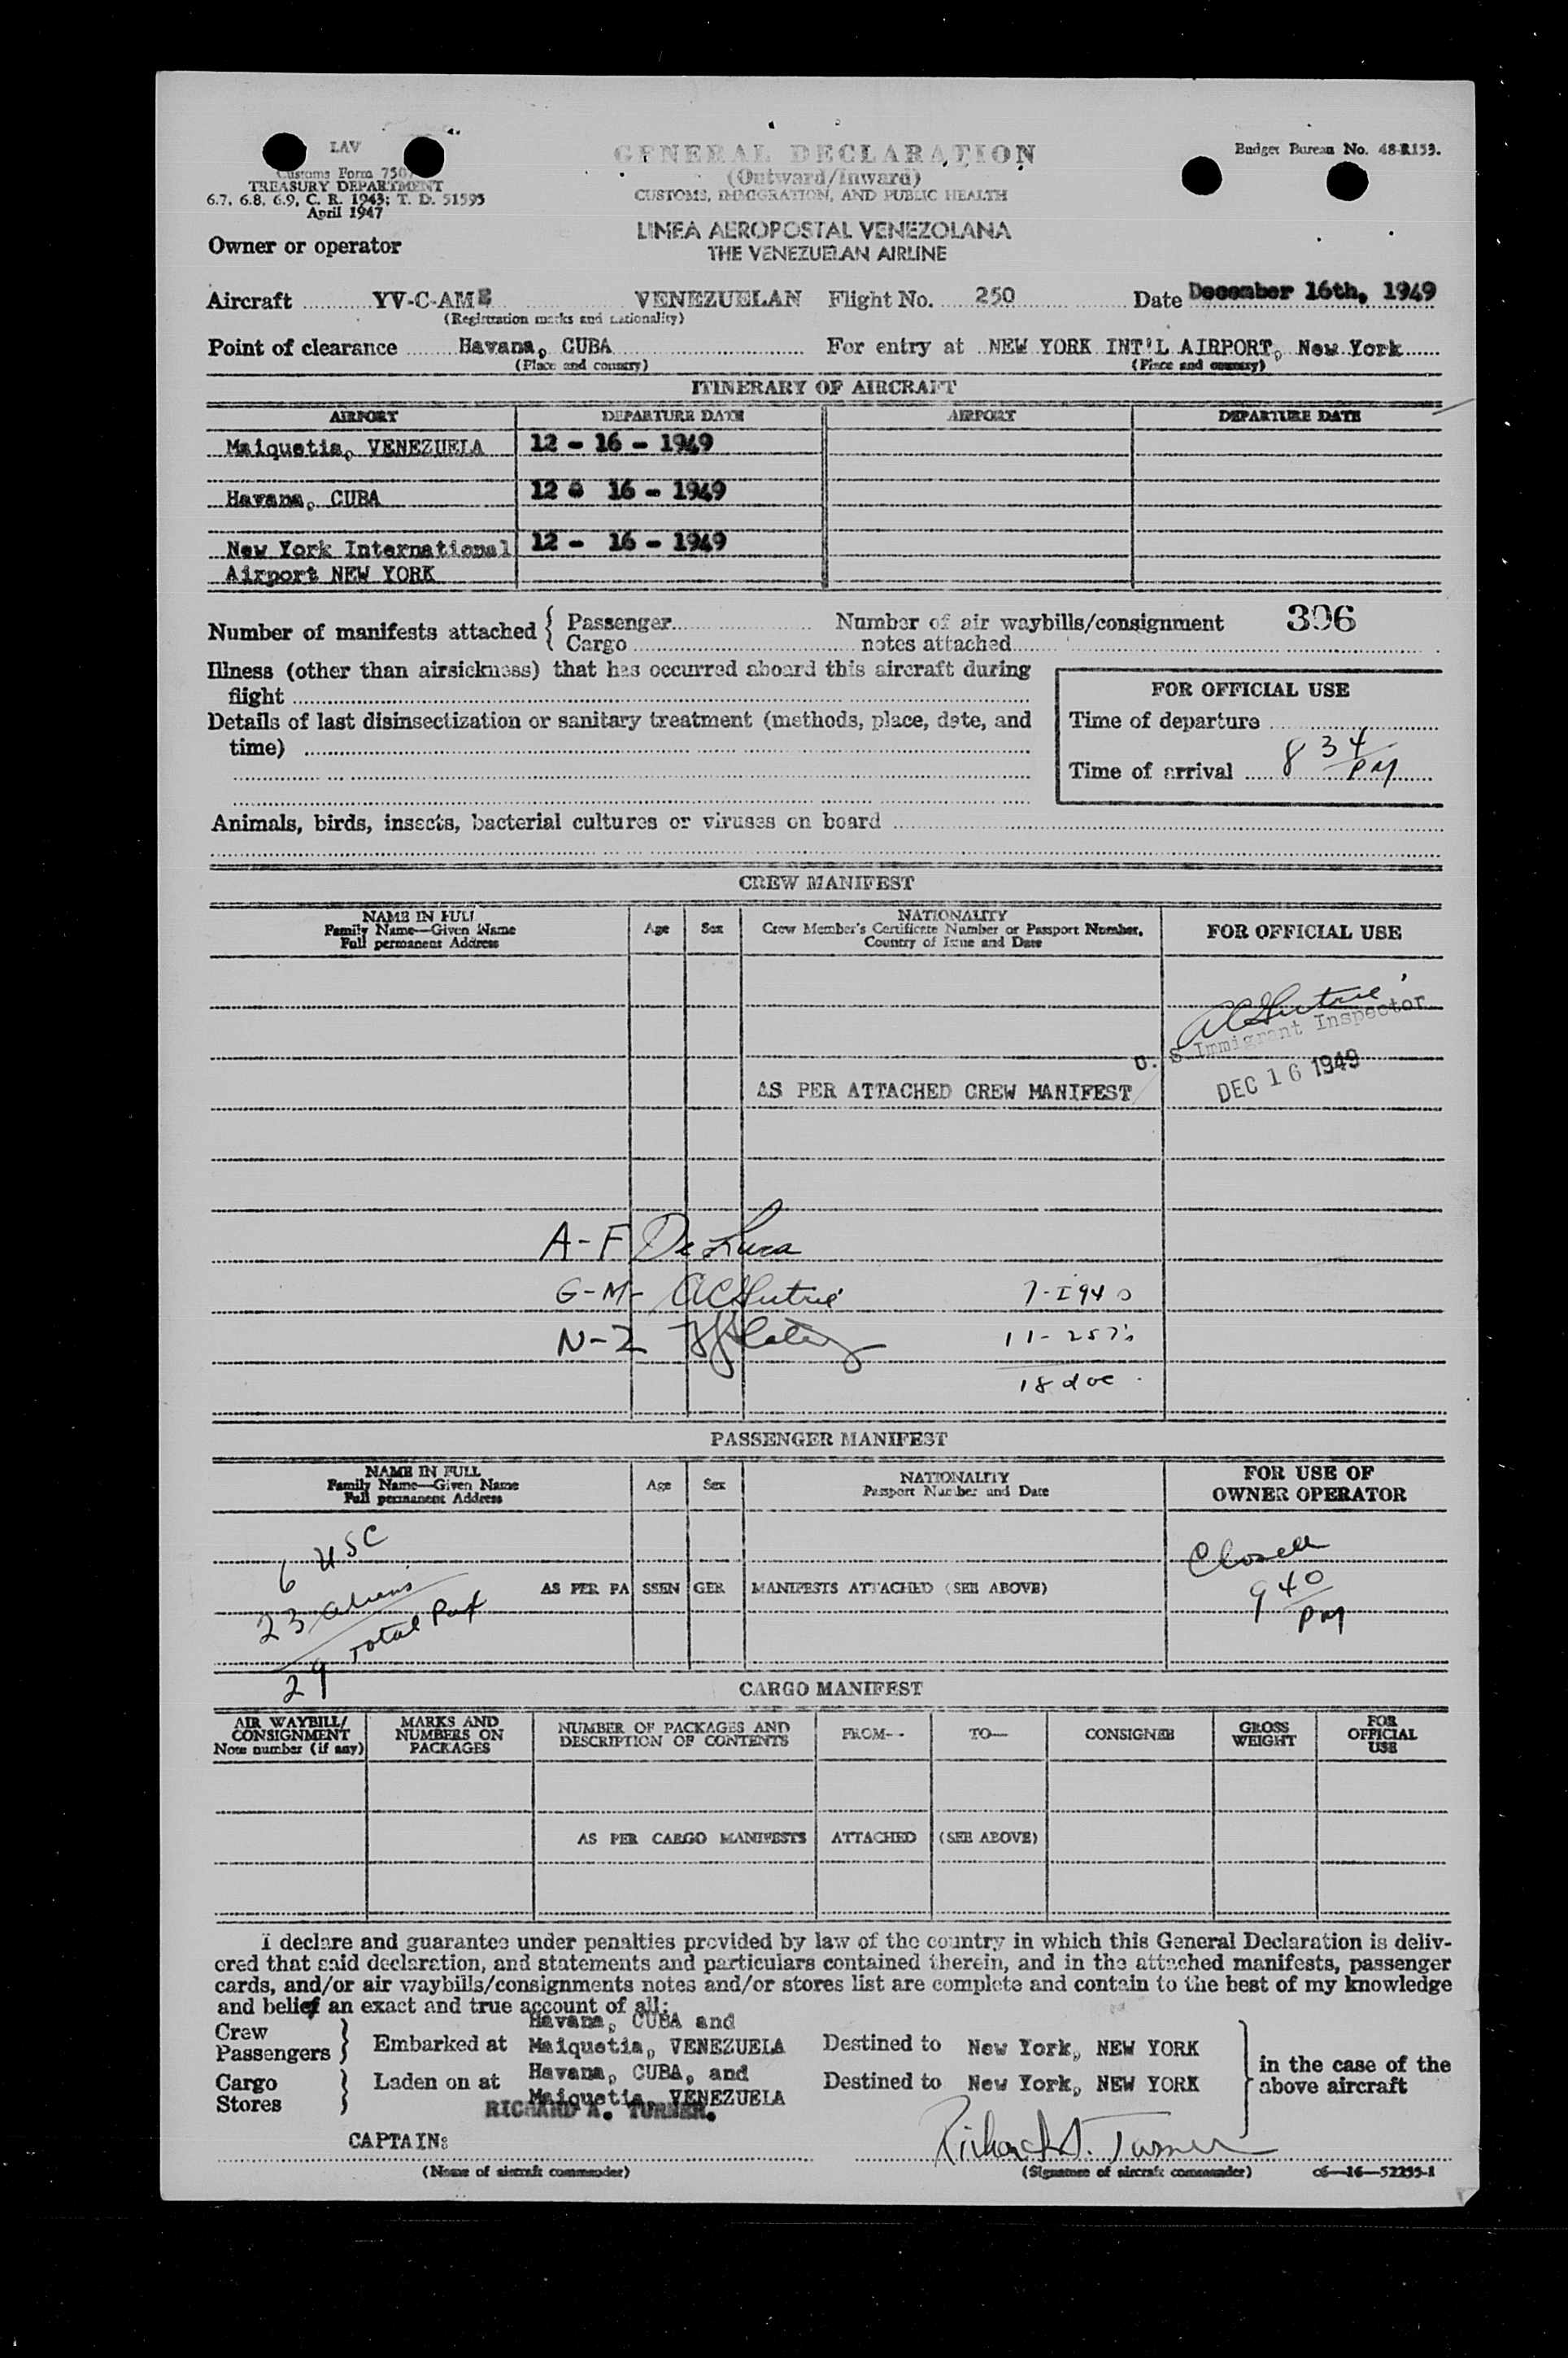 LAV
Customs Form 7507
TREASURY DEPARTMENT
6.7, 6.8, 6.9, C. R. 1943; T. D. 51595
April 1947
GENERAL DECLARATION
(Outward/Inward)
CUSTOMS, IMMIGRATION, AND PUBLIC HEALTH
Budget Bureau No. 48-R153.
LINEA AEROPOSTAL VENEZOLANA
THE VENEZUELAN AIRLINE
Owner or operator
Aircraft YV-C-AME VENEZUELAN Flight No. 250 Date December 16th, 1949
(Registration marks and nationality)
Point of clearance Havana, CUBA For entry at NEW YORK INT'L AIRPORT, New York
(Place and country) (Place and country)
ITINERARY OF AIRCRAFT
AIRPORT DEPARTURE DATE AIRPORT DEPARTURE DATE
Maiquetia, VENEZUELA 12 - 16 - 1949
Havana, CUBA 12 - 16 - 1949
New York International 12 - 16 - 1949
Airport NEW YORK
Number of manifests attached { Passenger Number of air waybills/consignment 396
Cargo notes attached
Illness (other than airsickness) that has occurred aboard this aircraft during
flight
Details of last disinsectization or sanitary treatment (methods, place, date, and
time)
FOR OFFICIAL USE
Time of departure
Time of arrival 8 34 PM
Animals, birds, insects, bacterial cultures or viruses on board
CREW MANIFEST
NAME IN FULL
Family Name—Given Name
Full permanent Address
Age
Sex
NATIONALITY
Crew Member's Certificate Number or Passport Number,
Country of Issue and Date
FOR OFFICIAL USE
U. S. Immigrant Inspector
DEC 16 1949
AS PER ATTACHED CREW MANIFEST
A-F De Luca
G-M-
7-I 94 s
N-Z
11-257's
18 doc.
PASSENGER MANIFEST
NAME IN FULL
Family Name—Given Name
Full permanent Address
Age
Sex
NATIONALITY
Passport Number and Date
FOR USE OF
OWNER OPERATOR
6 USC
23 aliens
29 Total Pax
AS PER PASSENGER MANIFESTS ATTACHED (SEE ABOVE)
Closed
9 40 PM
CARGO MANIFEST
AIR WAYBILL/
CONSIGNMENT
Note number (if any)
MARKS AND
NUMBERS ON
PACKAGES
NUMBER OF PACKAGES AND
DESCRIPTION OF CONTENTS
FROM—
TO—
CONSIGNEE
GROSS
WEIGHT
FOR
OFFICIAL
USE
AS PER CARGO MANIFESTS ATTACHED (SEE ABOVE)
I declare and guarantee under penalties provided by law of the country in which this General Declaration is deliv-
ered that said declaration, and statements and particulars contained therein, and in the attached manifests, passenger
cards, and/or air waybills/consignments notes and/or stores list are complete and contain to the best of my knowledge
and belief an exact and true account of all:
Crew
Passengers } Embarked at Havana, CUBA and
Maiquetia, VENEZUELA Destined to New York, NEW YORK
Cargo
Stores } Laden on at Havana, CUBA, and
Maiquetia, VENEZUELA Destined to New York, NEW YORK
in the case of the
above aircraft
RICHARD A. TURNER.
CAPTAIN: Richard A. Turner
(Name of aircraft commander) (Signature of aircraft commander) c6—16—52255-1